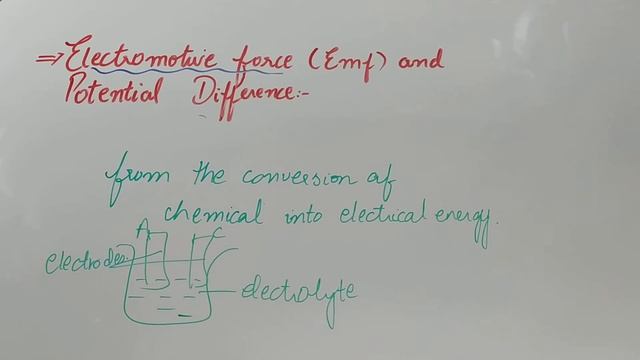 ⇒ Electromotive force (Emf) and
Potential Difference:-
from the conversion of
chemical into electrical energy.
A C
electrodes
electrolyte